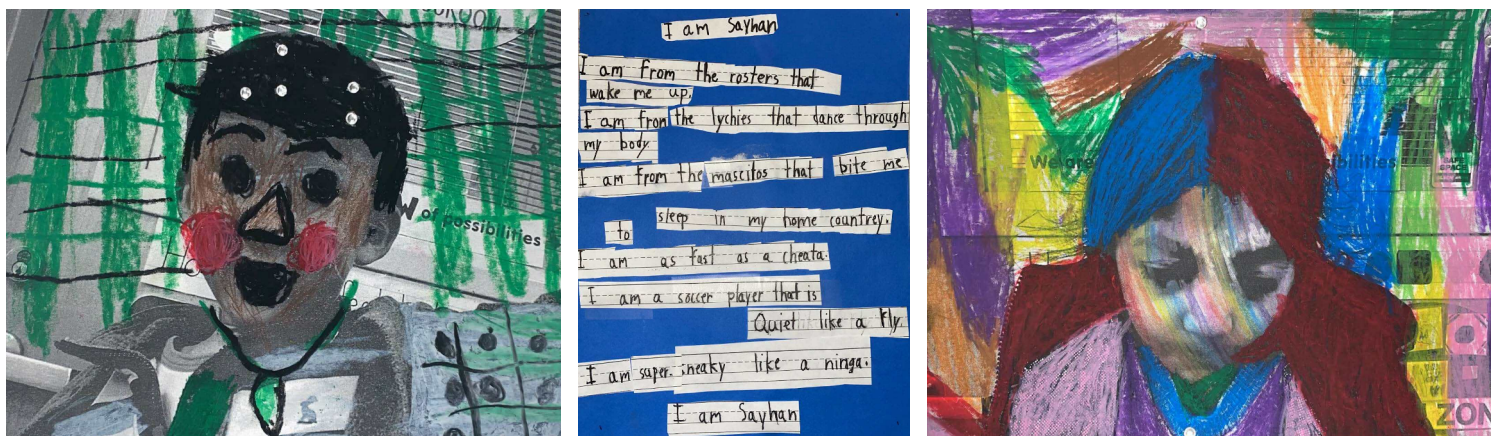 ROOM
W of possibilities
I am Sayhan
I am from the rosters that
wake me up.
I am from the lychies that dance through
my body
I am from the mascitos that bite me
to sleep in my home countrey.
I am as fast as a cheata.
I am a soccer player that is
Quiet like a fly.
I am super sneaky like a ninga.
I am Sayhan
We are
sibilities
ZON